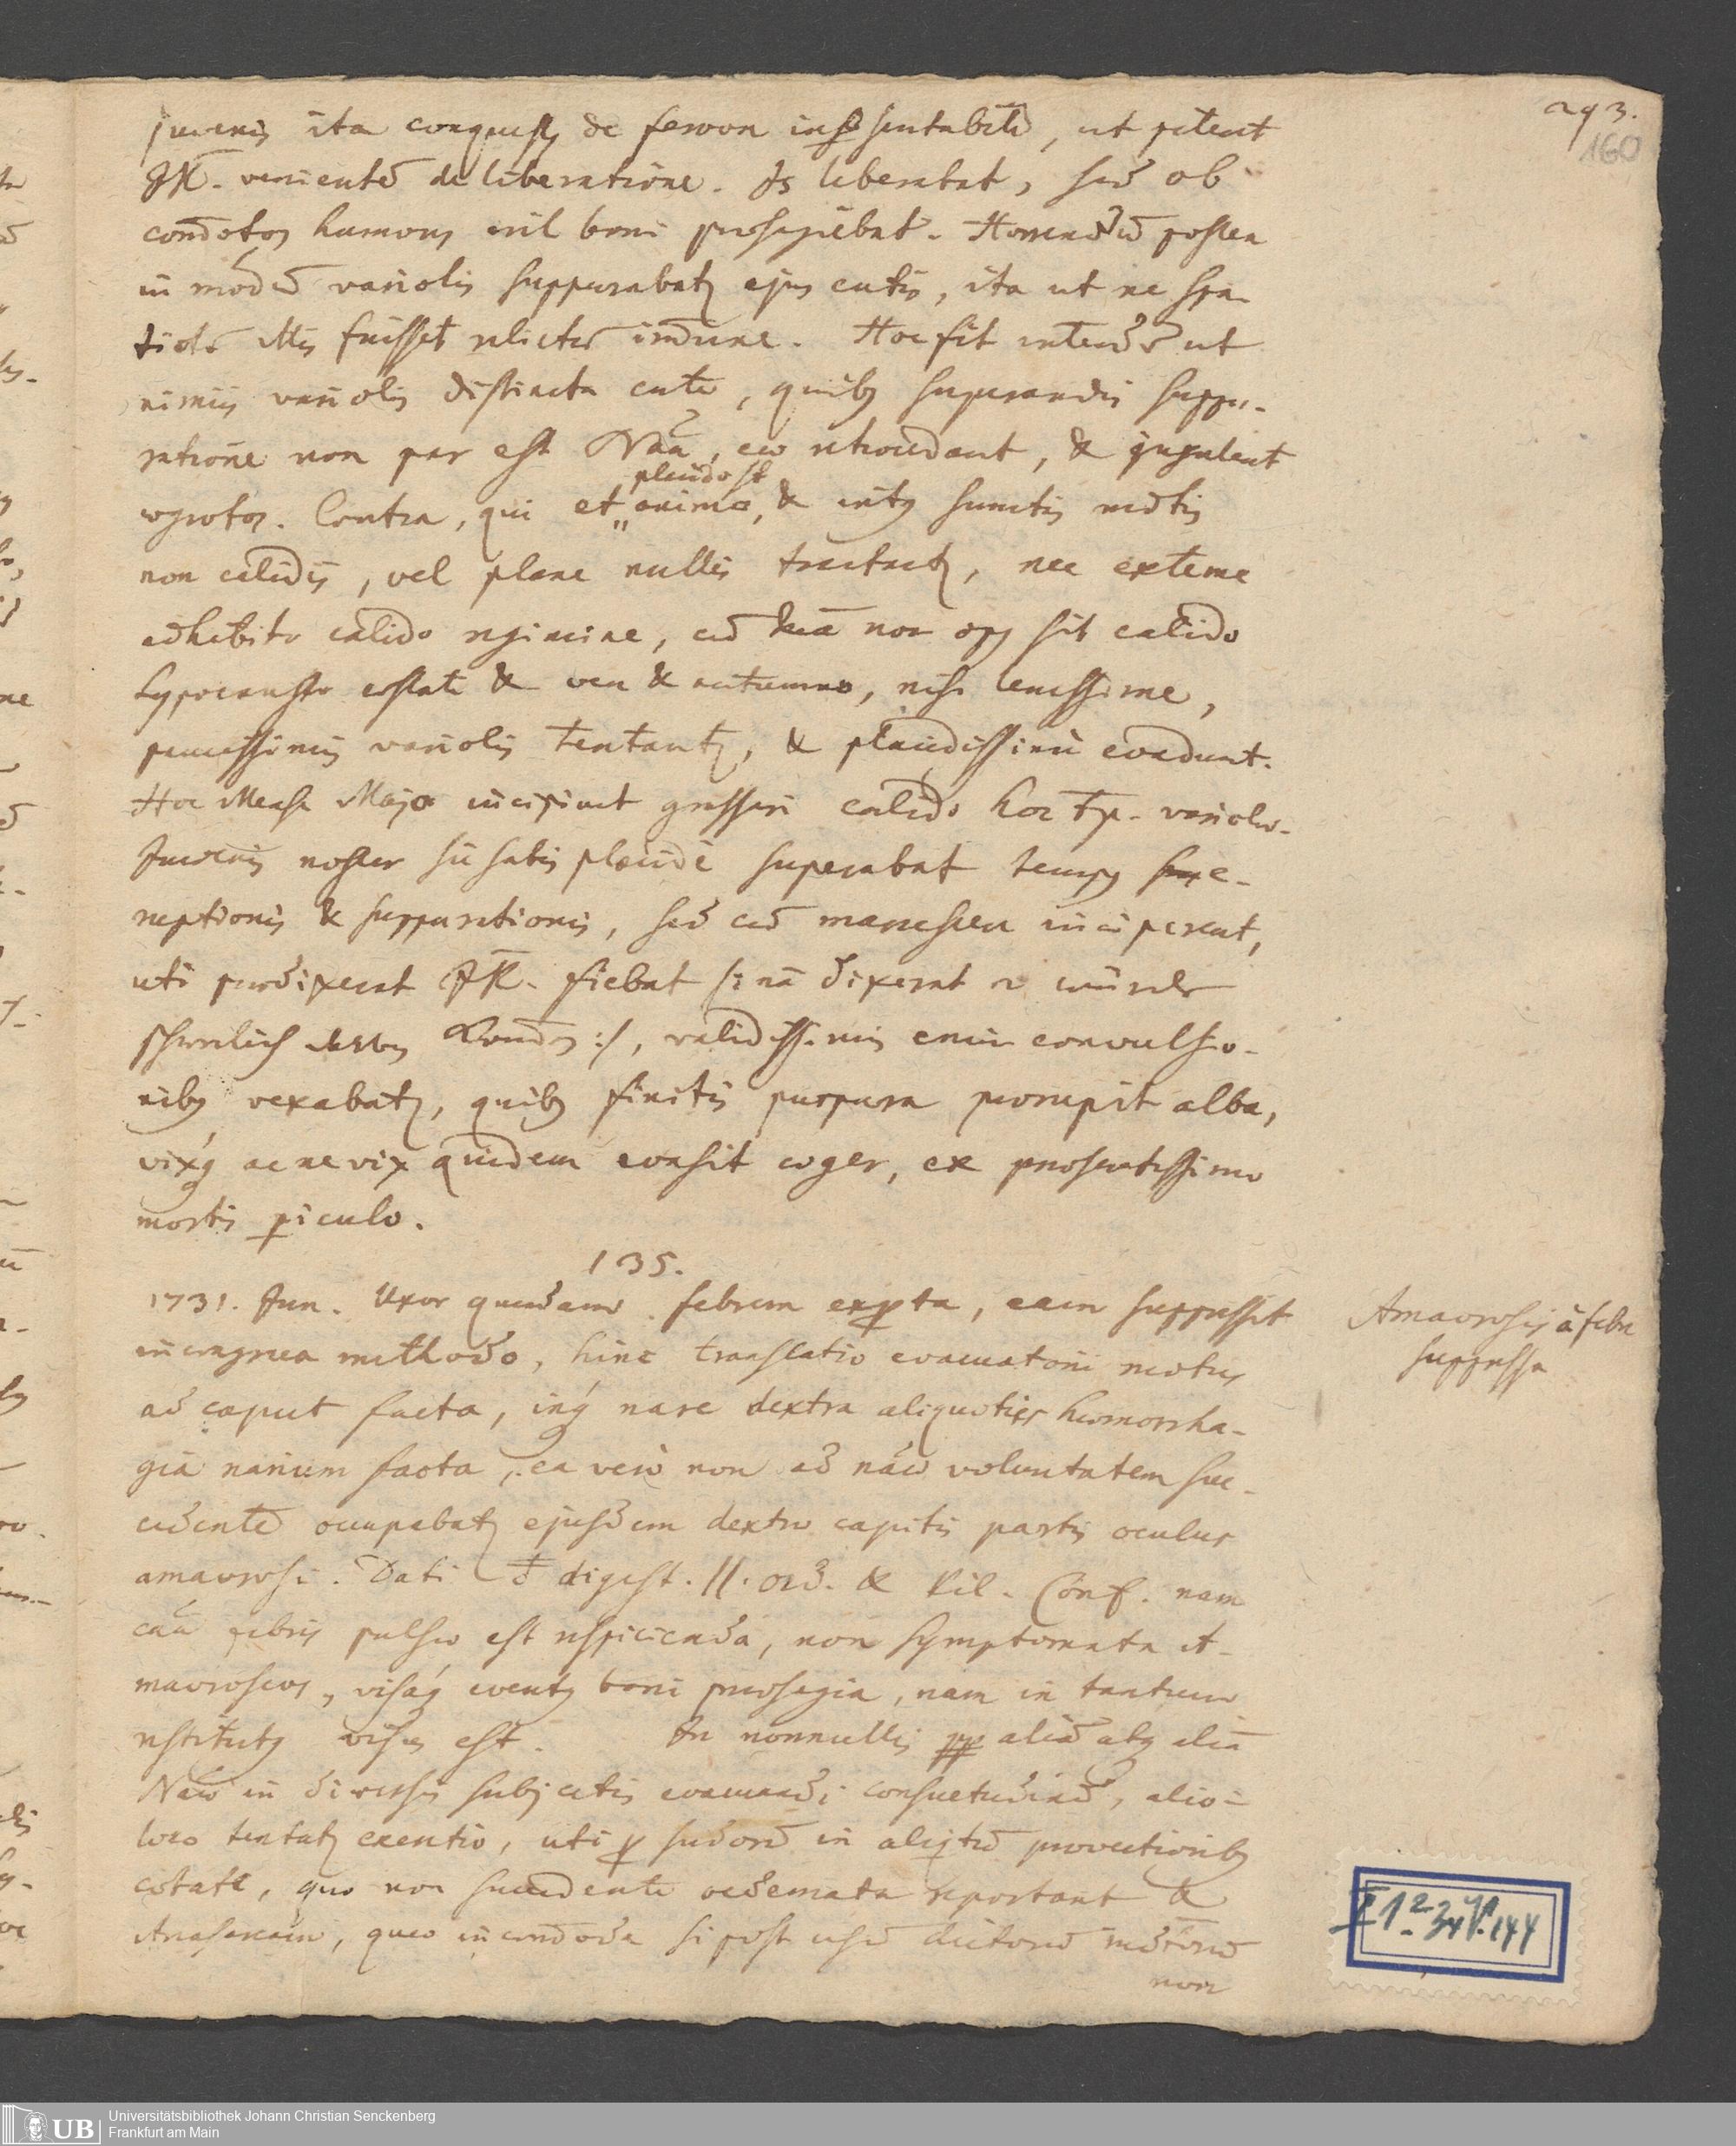 293.
160
juvenis ita conquestus de fervore insustentabili, ut peteret
venientem de liberatione. Is liberabat, sed ob
commotos humores nil boni praesagiebat. Horrendum postea
in modum variolis suppurabatur ejus cutis, ita ut ne spa-
tiolum illis fuisset relictum immune. Hoc fit interdum ut
nimiis variolis distincta cute, quibus superandis suppu-
ratione non par est Natura, eae retrocedant, & jugulent
aegrotos. Contra, qui et placido sunt animo, & intus sumtis
non calidis, vel plane nullis tractantur, nec externe
adhibito calido regimine, cum non opus sit calido
hypocausto aestate & vere & autumno, nisi lenissime,
paucissimis variolis tentantur, & placidissime evadunt.
Hoc Mense Majo incipiunt grassari calido hoc temp. variolae.
Juvenis noster sic satis placide superabat tempus
reptionis & suppurationis, sed cum marcescere inciperent,
uti praedixerat fiebat dixerat
validissimis enim convulsio-
nibus vexabatur, quibus finitis purpura prorupit alba,
vixque ac ne vix quidem evasit aeger, ex praesentissimo
mortis periculo.
135.
1731. Jun. Uxor quaedam febrem experta, eam suppressit
incongrua methodo, hinc translatio evacuatorii motus
ad caput facta, inque nare dextra aliquoties haemorrha-
gia narium facta, ea vero non ad naturae voluntatem suc-
cedente occupabatur ejusdem dextrae capitis partis oculus
amaurosi. Dati digest. II. ord. & Pil. Conf. nam
causa febris pulsae est respicienda, non symptomata A-
mauroseos, visaque eventus boni praesagia, nam in tantum
restitutus visus est. In nonnullis aliam atque aliam
Naturae in diversis subjectis evacuandi consuetudinem, alio
loco tentatur excretio, uti per sudorem in aliquantum provectioribus
aetate, quo non succedente oedemata reportant &
Anasarcam, quae incommoda si post usum dictorum
non
Amaurosis à febre
suppressa
Universitätsbibliothek Johann Christian Senckenberg
Frankfurt am Main
UB